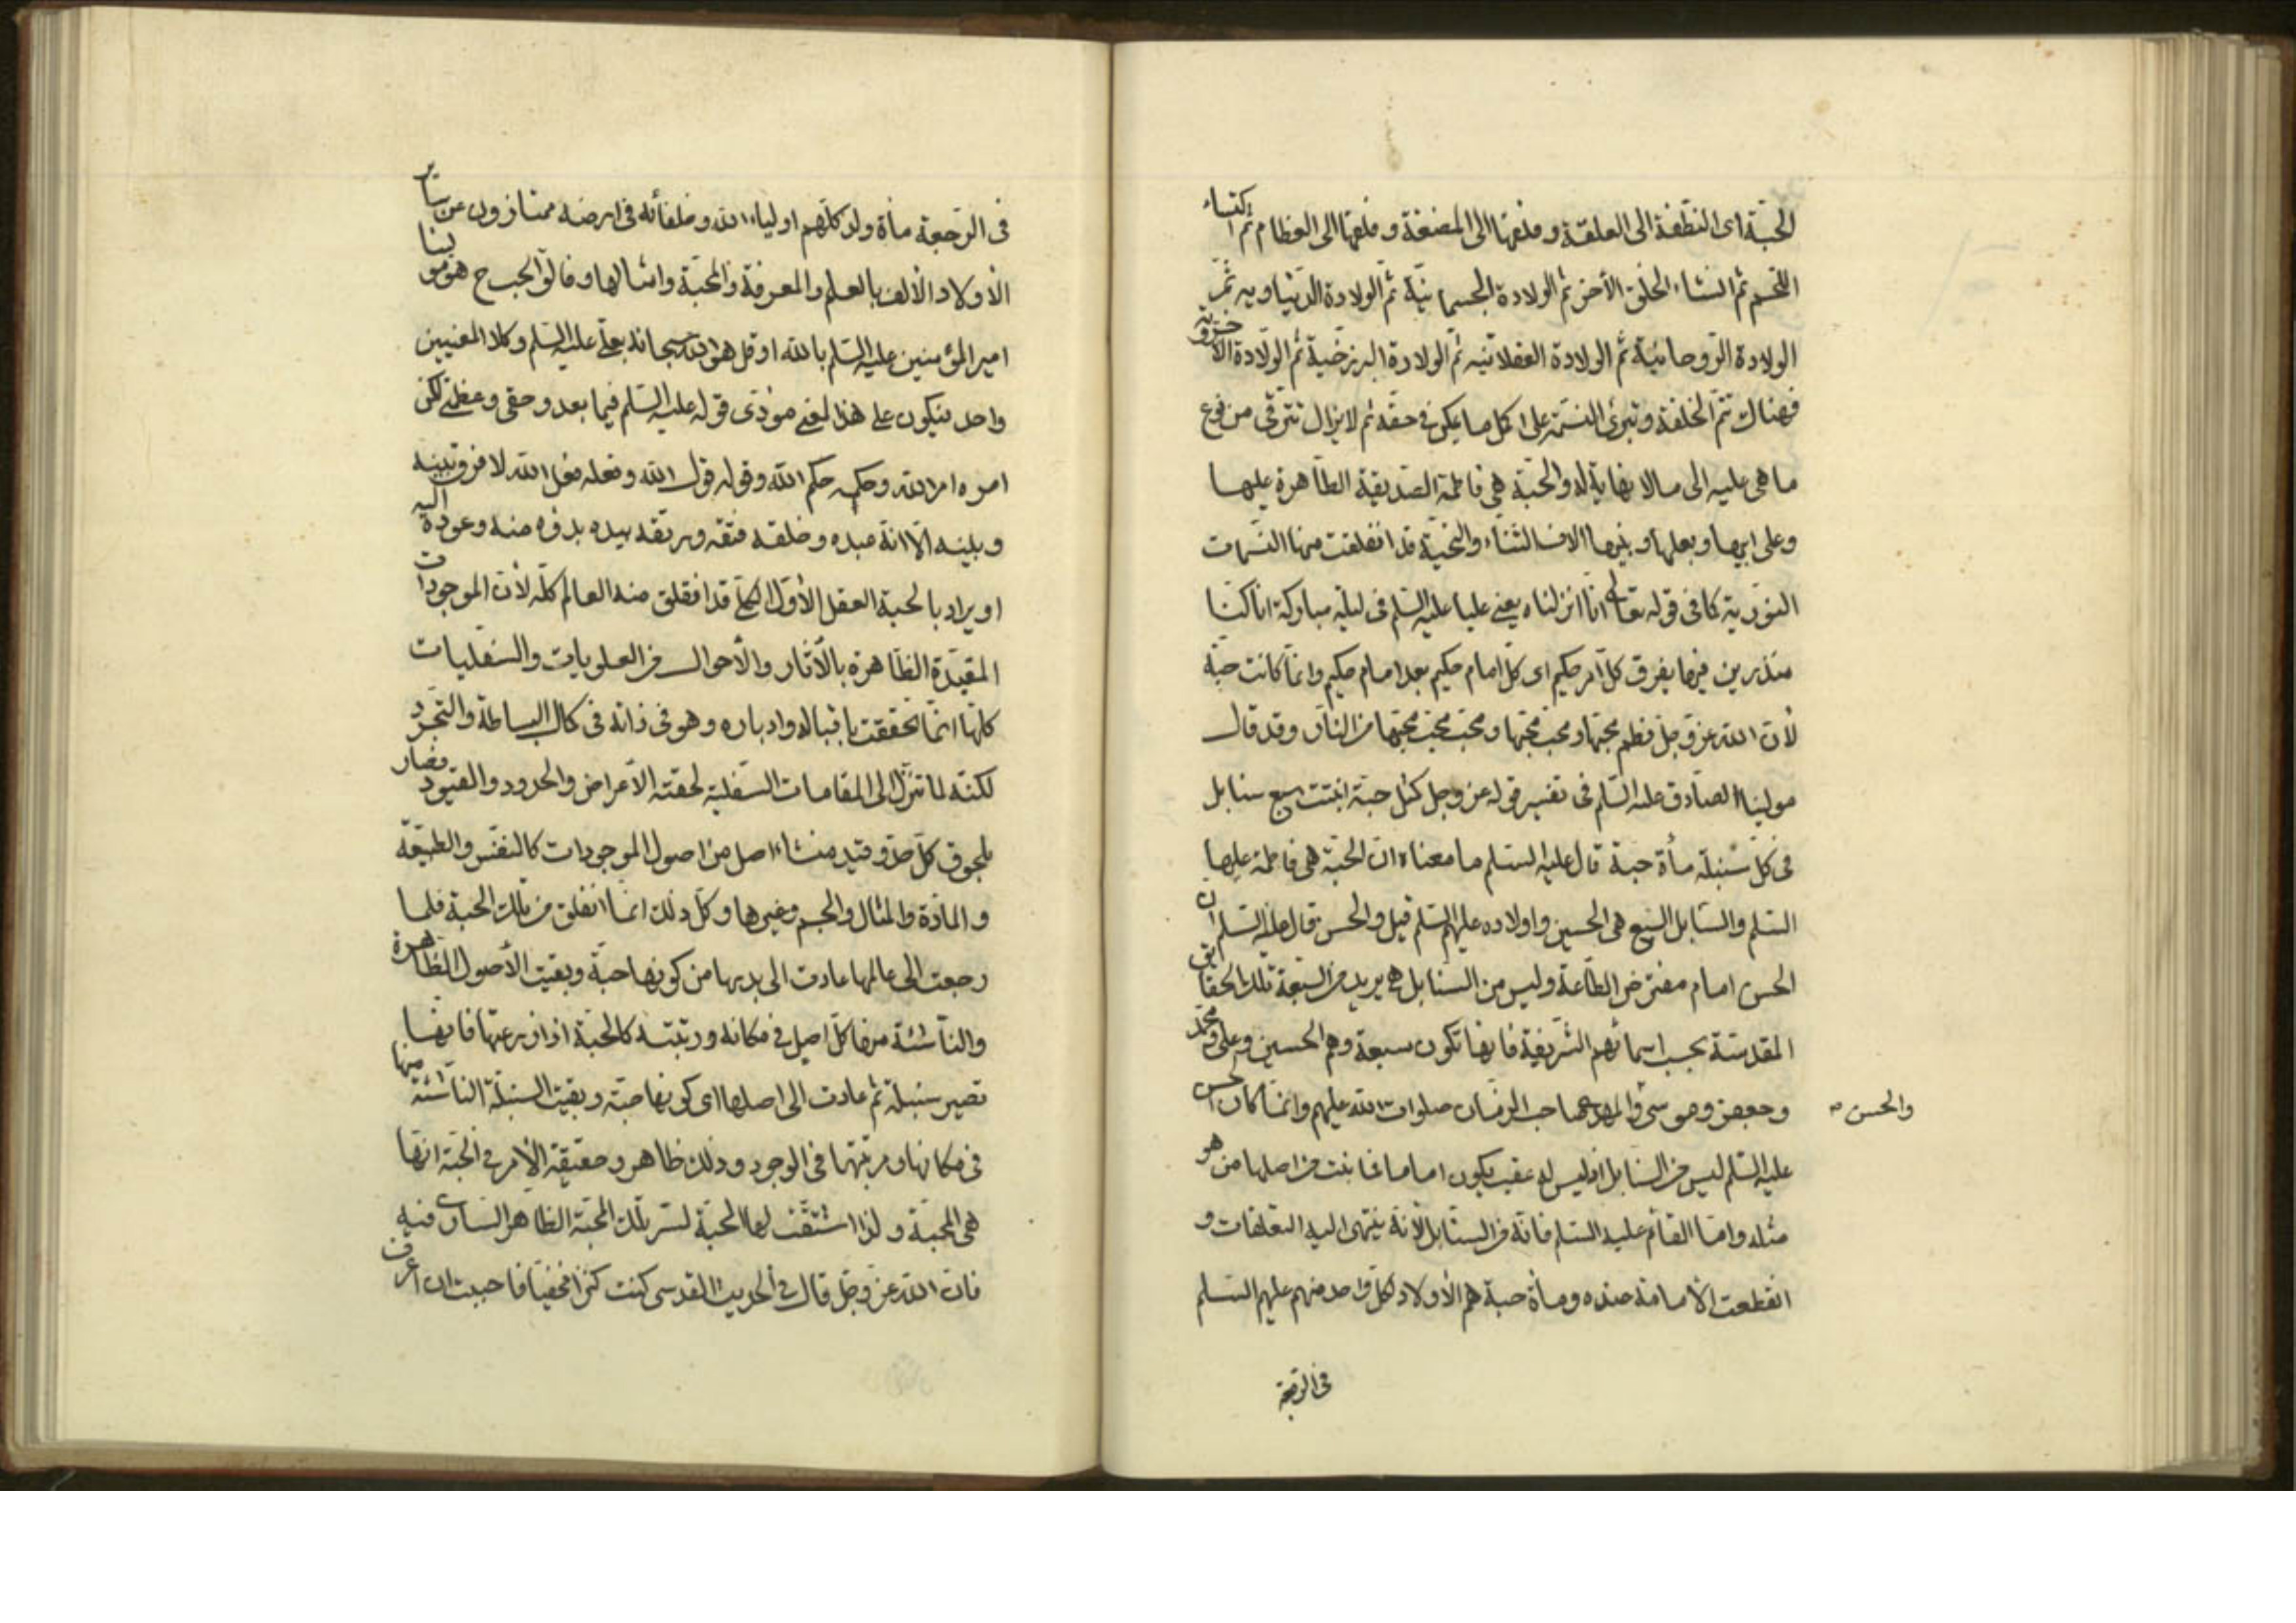 الحبّة اى النطفة الى العلقة و فلقها الى المضغة و فلقها الى العظام ثم اكتساء
اللحم ثم انشاء الخلق الآخر ثم الولادة الجسمانيّة ثم الولادة الدنياويه ثمّ
الولادة الروحانية ثم الولادة العقلانيه ثم الولادة البرزخية ثم الولادة الأخروية
فهناك تتم الخلقة و تبرئ النسمة على اكمل ما يمكن فى حقه ثم لا يزال تترقى من نوع
ما هى عليه الى ما لا نهاية له والحبّة هى فاطمة الصديقية الطاهرة عليها
وعلى ابيها و بعلها و بنيها الاف الثناء والتحية قد انفلقت منها النسمات
النورية كما فى قوله تعالى انا انزلناه يعنى عليا عليه السلم فى ليلة مباركة انا كنا
منذرين فيها يفرق كل امر حكيم اى كل امام حكيم بعد امام حكيم وانما كانت حبّة
لأن الله عز وجل فطم محبها و محب محبها و محب محب محبها من النار وقد قال
مولينا الصادق عليه السلم فى تفسير قوله عز وجل كمثل حبة انبتت سبع سنابل
فى كل سنبلة مأة حبة قال عليه السلم ما معناه ان الحبّة هى فاطمة عليها
السلم والسنابل السبع هى الحسين واولاده عليهم السلم قيل والحسن قال عليه السلم ان
الحسن امام مفترض الطاعة وليس من السنابل هـ يريد من السبعة تلك الحقايق
المقدسة بحسب اسمائهم الشريفة فانها تكون سبعة وهم الحسين وعلى ومحمد
وجعفر وموسى والمهدى صاحب الزمان صلوات الله عليهم وانما كان الحسن
والحسن صح
عليه السلم ليس من السنابل اذ ليس له عقب يكون اماما نابت من اصلها من هو
مثله واما القائم عليه السلم فانه من السنابل لأنه ينتهى اليه التعلقات و
انقطعت الأمامة عنده ومأة حبة هم الأولاد لكل واحد منهم عليهم السلم
فى الرجعة
فى الرّجعة مأة ولد كلّهم اولياء الله و خلفائه فى ارضه ممتازون عن ساير
الأولاد الألف بالعلم والمعرفة والمحبّة وامثالها و فالق الحب ح هو مولينا
امير المؤمنين عليه السلم بالله او قل هو الله سبحانه بعلى عليه السلم وكلا المعنيين
واحد فيكون على هذا المعنى مؤدى قوله عليه السلم فيما بعد وحقى وعظمتى لكن
امره امر الله وحكمه حكم الله وقوله قول الله وفعله فعل الله لا فرق بينه
و بينه الا انه عبده و خلقه فتقه ورتقه بيده بدؤه منه و عوده اليه
او يراد بالحبة العقل الأول الكلى قد انفلق منه العالم كله لأن الموجودات
المقيدة الظاهرة بالأثار والأحوال من العلويات والسفليات
كلها انما تحققت باقباله وادباره وهو فى ذاته فى كمال البساطة والتجرد
لكنه لما تنزل الى المقامات السفلية لحقته الأعراض والحدود والقيود فصار
بلحوق كل حد و قيد منشاء اصل من اصول الموجودات كالنفس والطبيعة
والمادة والمثال والجسم وغيرها و كل ذلك انما انفلق من تلك الحبة فلما
رجعت الى عالمها عادت الى بديها من كونها حبة وبقيت الأصول الظاهرة
والناشئة منها كل اصل فى مكانه ورتبته كالحبة اذا زرعتها فانها
تصير سنبلة ثم عادت الى اصلها اى كونها حبة وبقيت السنبلة الناشئة منها
فى مكانها و مرتبتها فى الوجود و ذلك ظاهر وحقيقة الأمر فى الحبة انها
هى المحبة و لذا اشتقت لها الحبة لسر تلك المحبة الظاهر السارى فيه
فان الله عز وجل قال فى الحديث القدسى كنت كنزا مخفيا فاحببت ان اعرف